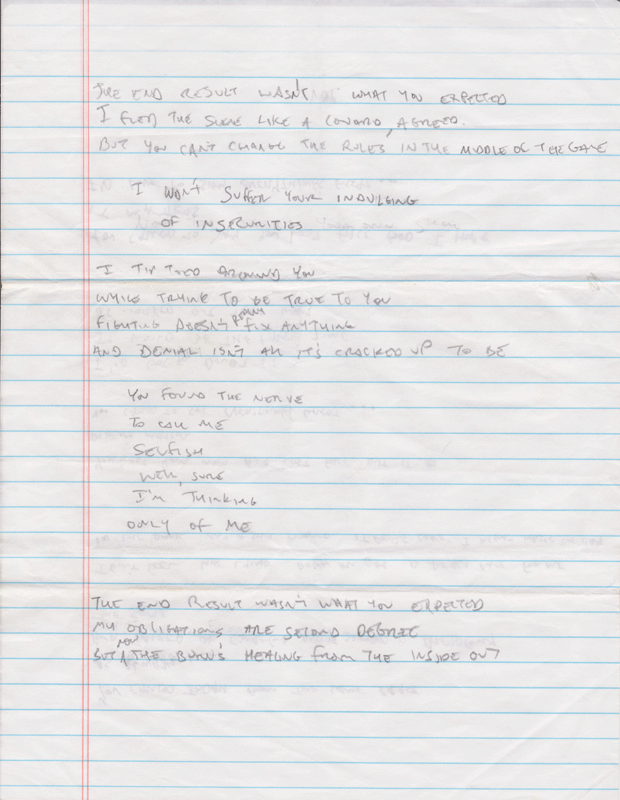 THE END RESULT WASN'T WHAT YOU EXPECTED
I FLED THE SCENE LIKE A COWARD, AGREED.
BUT YOU CAN'T CHANGE THE RULES IN THE MIDDLE OF THE GAME
I WON'T SUFFER YOUR INDULGING
OF INSECURITIES
I TIP TOED AROUND YOU
WHILE TRYING TO BE TRUE TO YOU
FIGHTING DOESN'T REALLY FIX ANYTHING
AND DENIAL ISN'T ALL IT'S CRACKED UP TO BE
YOU FOUND THE NERVE
TO CALL ME
SELFISH
WELL, SURE
I'M THINKING
ONLY OF ME
THE END RESULT WASN'T WHAT YOU EXPECTED
MY OBLIGATIONS ARE SECOND DEGREE
BUT NOW THE BURN'S HEALING FROM THE INSIDE OUT